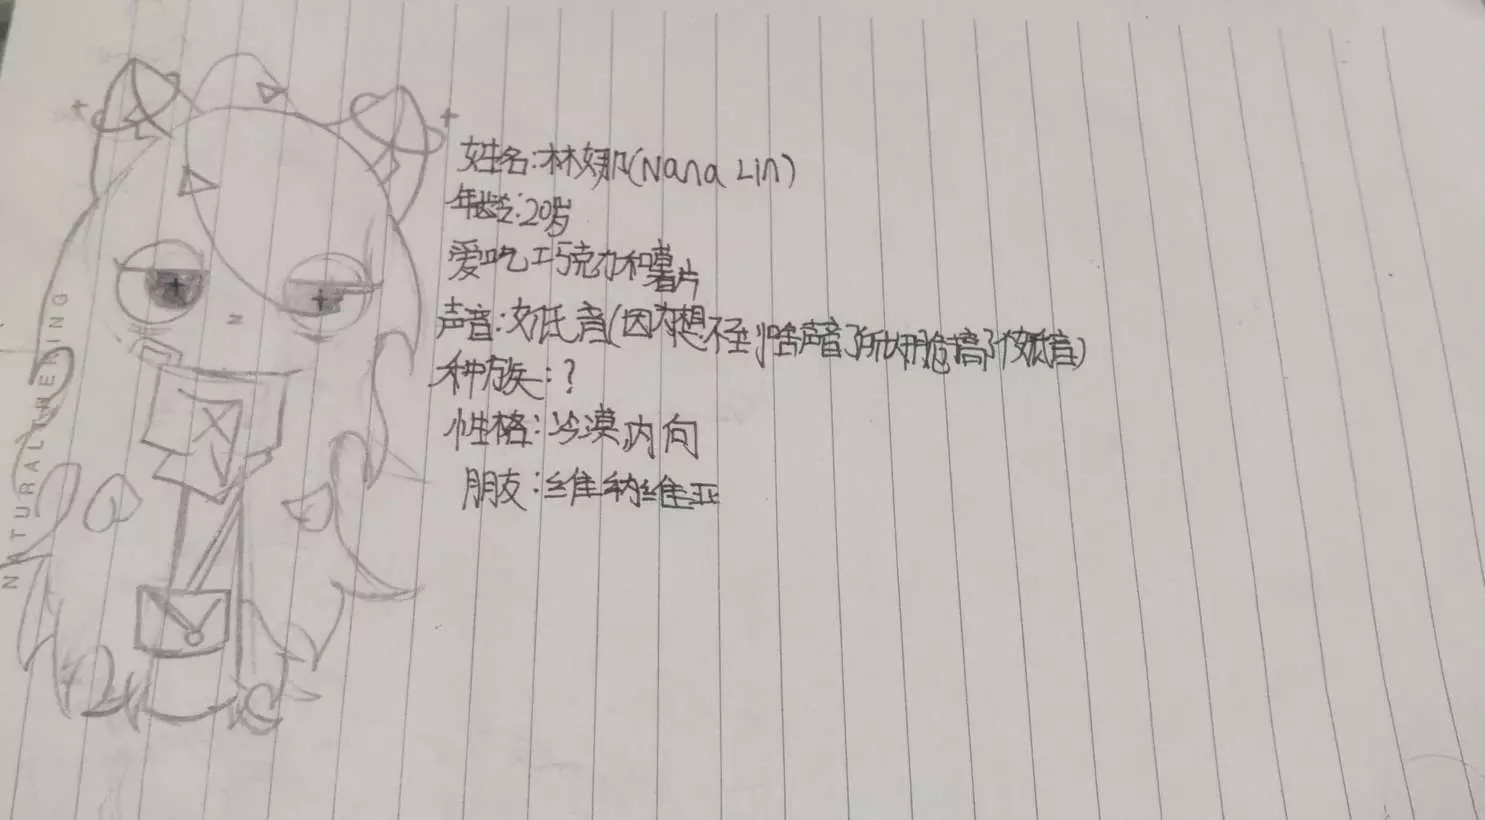 姓名:林娜(Nana Lin)
年龄:20岁
爱吃巧克力和薯片
声音:女低音(因为想不到啥声音了所以干脆搞了个女低音)
种族:?
性格:冷漠,内向
朋友:维纳维亚
NATURAL THE ING